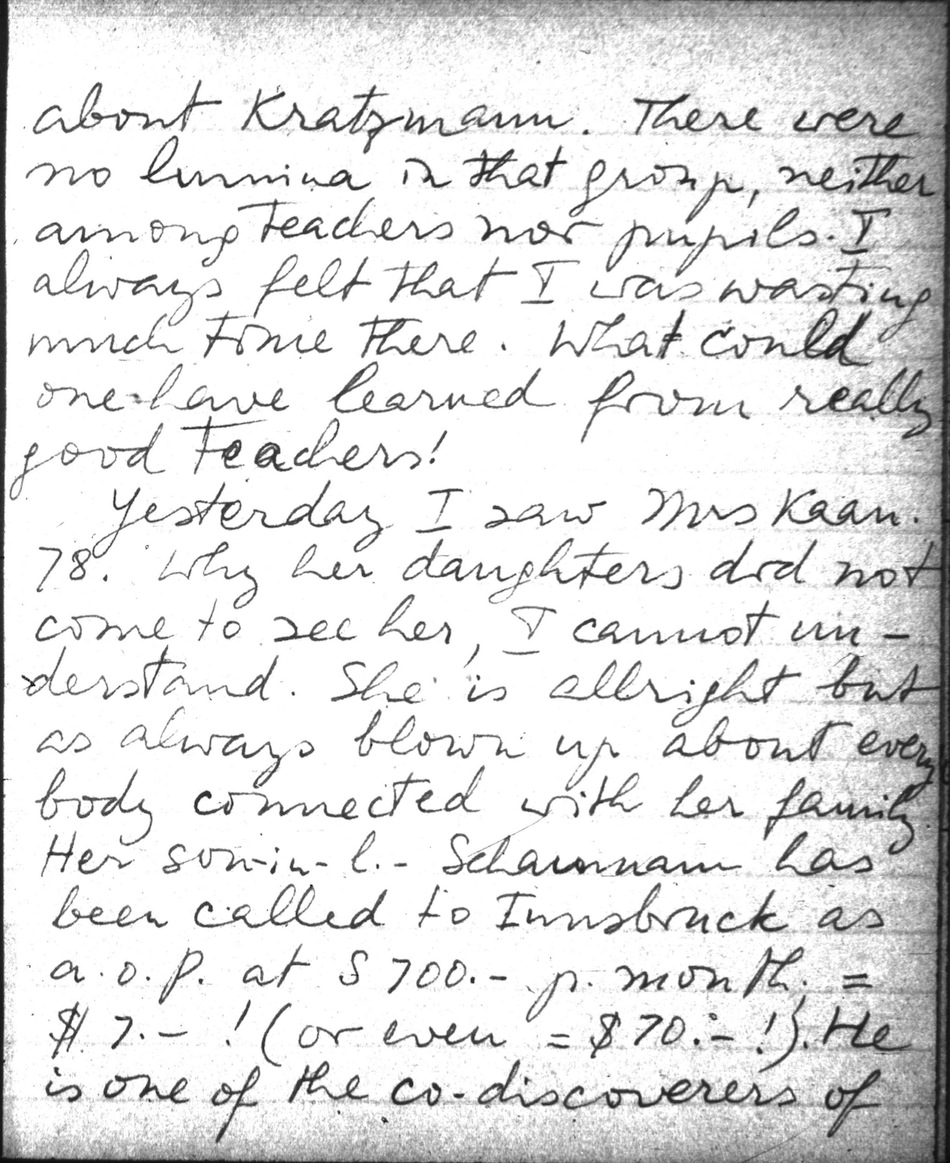 about Kratzmann. There were
no lumina in that group, neither
among teachers nor pupils. I
always felt that I was wasting
much time there. What could
one have learned from really
good teachers!
Yesterday I saw Mrs Kaan.
78. Why her daughters did not
come to see her, I cannot un-
derstand. She is allright but
as always blown up about every
body connected with her family.
Her son-in-l.- Schaumann has
been called to Innsbruck as
a.o.P. at S 700.- p. month. =
$ 7.- ! (or even = $ 70.- !). He
is one of the co-discoverers of